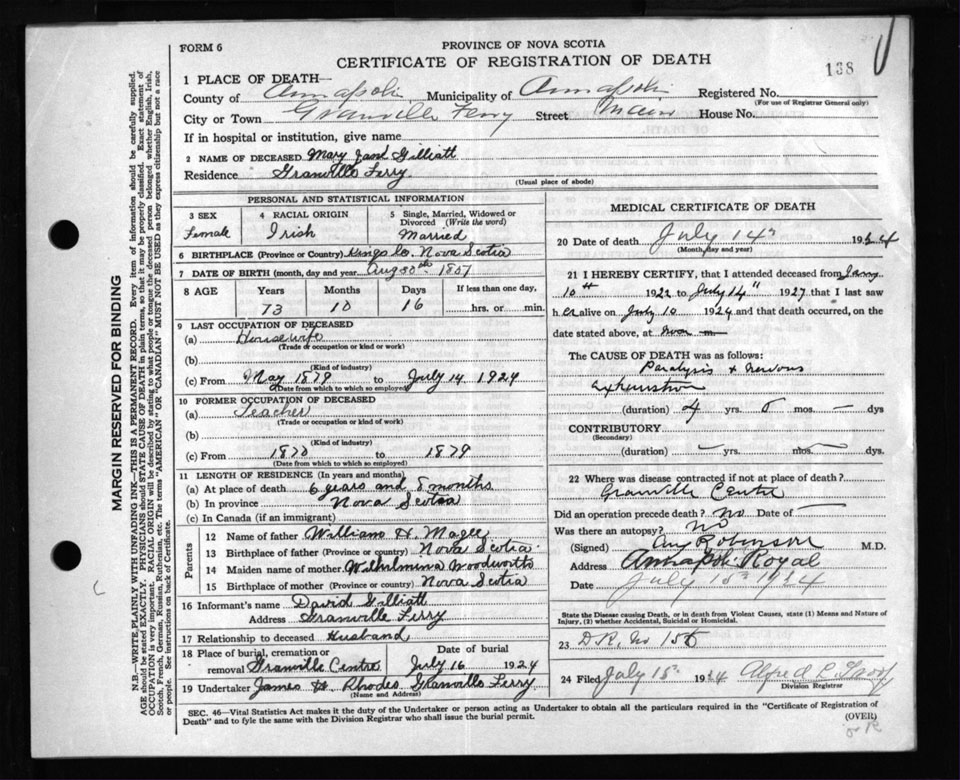 FORM 6
PROVINCE OF NOVA SCOTIA
CERTIFICATE OF REGISTRATION OF DEATH
138
1 PLACE OF DEATH—
County of Annapolis Municipality of Annapolis Registered No.
(For use of Registrar General only)
City or Town Granville Ferry Street Main House No.
If in hospital or institution, give name
2 NAME OF DECEASED Mary Jane Gilliatt
Residence Granville Ferry
(Usual place of abode)
PERSONAL AND STATISTICAL INFORMATION
3 SEX
Female
4 RACIAL ORIGIN
Irish
5 Single, Married, Widowed or
Divorced (Write the word)
Married
6 BIRTHPLACE (Province or Country) Kings Co. Nova Scotia
7 DATE OF BIRTH (month, day and year Aug 30th
8 AGE Years Months Days If less than one day,
73 10 16 hrs. or min.
9 LAST OCCUPATION OF DECEASED
(a) Housewife
(Trade or occupation or kind or work)
(b)
(Kind of industry)
(c) From May 1879 to July 14 1924
(Date from which to which so employed)
10 FORMER OCCUPATION OF DECEASED
(a) Teacher
(Trade or occupation or kind of work)
(b)
(Kind of industry)
(c) From 1870 1879
(Date from which to which so employed)
11 LENGTH OF RESIDENCE (In years and months)
(a) At place of death 6 years and 8 months
(b) In province Nova Scotia
(c) In Canada (if an immigrant)
Parents
12 Name of father William H. Magee
13 Birthplace of father (Province or country) Nova Scotia
14 Maiden name of mother Wilhelmina Woodworth
15 Birthplace of mother (Province or country) Nova Scotia
16 Informant's name David Gilliatt
Address Granville Ferry
17 Relationship to deceased Husband
18 Place of burial, cremation or Date of burial
removal Granville Centre July 16 1924
19 Undertaker James H. Rhodes Granville Ferry
(Name and Address)
MEDICAL CERTIFICATE OF DEATH
20 Date of death July 14th 1924
(Month, day and year)
21 I HEREBY CERTIFY, that I attended deceased from
10th 1922 to July 14th 1927 that I last saw
h er alive on July 10 1924 and that death occurred, on
the date stated above, at m
The CAUSE OF DEATH was as follows:
Paralysis & nervous
exhaustion
(duration) 4 yrs. mos. — dys
CONTRIBUTORY
(Secondary)
(duration) — yrs. — mos. — dys
22 Where was disease contracted if not at place of death?
Granville Centre
Did an operation precede death? No Date of —
Was there an autopsy? No
(Signed) Robinson M.D.
Address Annapolis Royal
Date July 15th 1924
State the Disease causing Death, or in death from Violent Causes, state (1) Means and Nature of
Injury, (2) whether Accidental, Suicidal or Homicidal.
23 D.R. No 155
24 Filed July 15th 1924 Alfred
Division Registrar
SEC. 46—Vital Statistics Act makes it the duty of the Undertaker or person acting as Undertaker to obtain all the particulars required in the "Certificate of Registration of
Death" and to fyle the same with the Division Registrar who shall issue the burial permit.
(OVER)
MARGIN RESERVED FOR BINDING
N.B.—WRITE PLAINLY WITH UNFADING INK—THIS IS A PERMANENT RECORD. Every item of information should be carefully supplied.
AGE should be stated EXACTLY. PHYSICIANS should STATE CAUSE OF DEATH in plain terms, so that it may be properly classified. Exact statement of
OCCUPATION is very important. RACIAL ORIGIN will be described by stating to what people or tongue the deceased person belonged whether English, Irish,
Scotch, French, German, Russian, Ruthenian, etc. The terms "AMERICAN" OR "CANADIAN" MUST NOT BE USED as they express citizenship but not a race
or people. See instructions on back of Certificate.